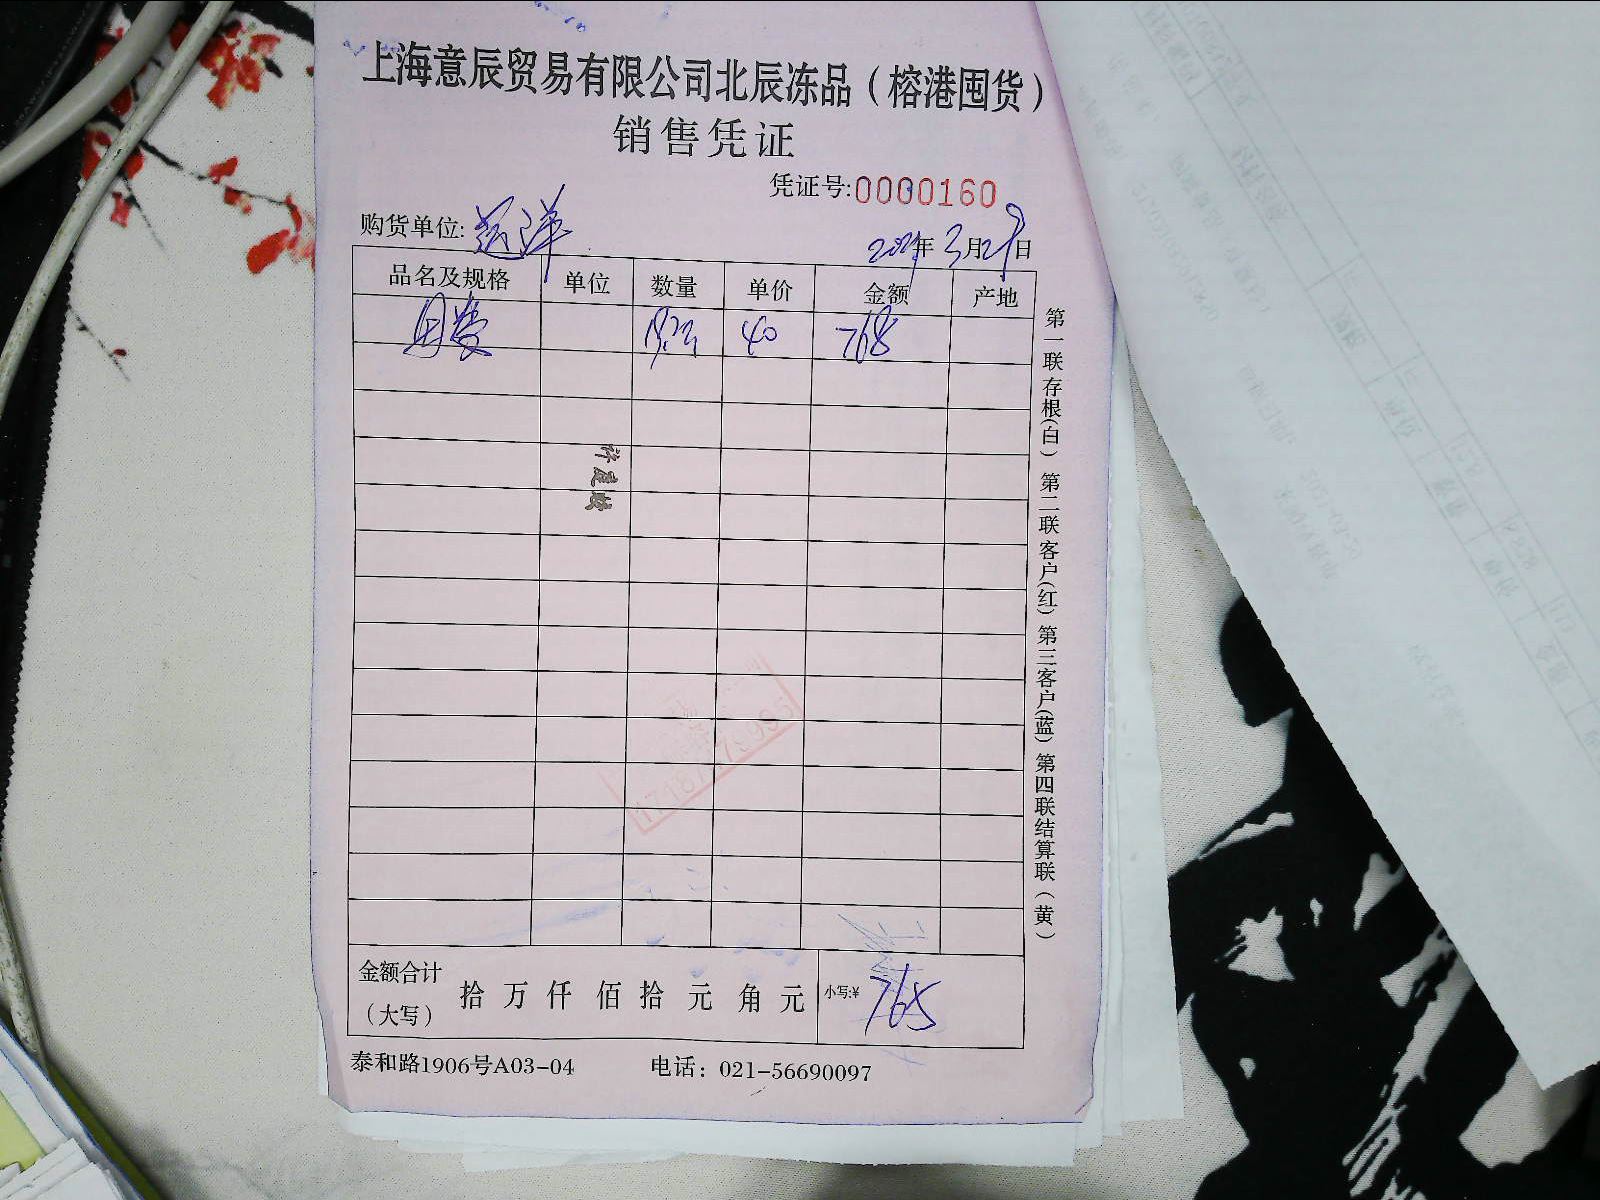 上海意辰贸易有限公司北辰冻品（榕港囤货）
销售凭证
凭证号:0000160
购货单位: 远洋
2021年3月29日
品名及规格 单位 数量 单价 金额 产地
40 768
许是发
第一联存根(白) 第二联客户(红) 第三客户(蓝) 第四联结算联(黄)
金额合计（大写） 拾 万 仟 佰 拾 元 角 元 小写:¥ 765
泰和路1906号A03-04 电话：021-56690097